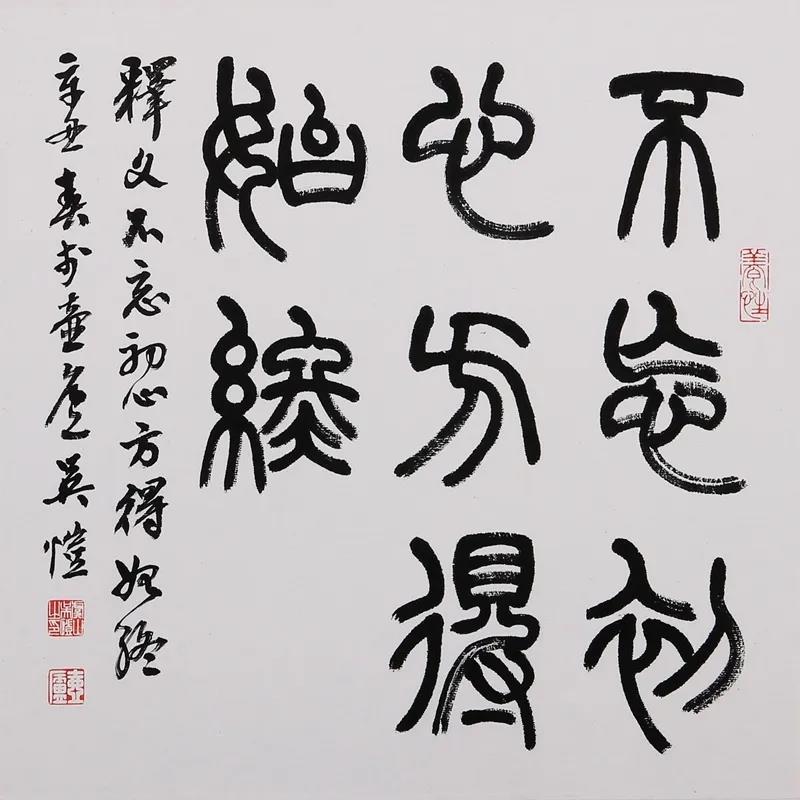 不忘初
心方得
始終
釋文不忘初心方得始終
辛丑春於壺廬吳愷
養性
壺盧